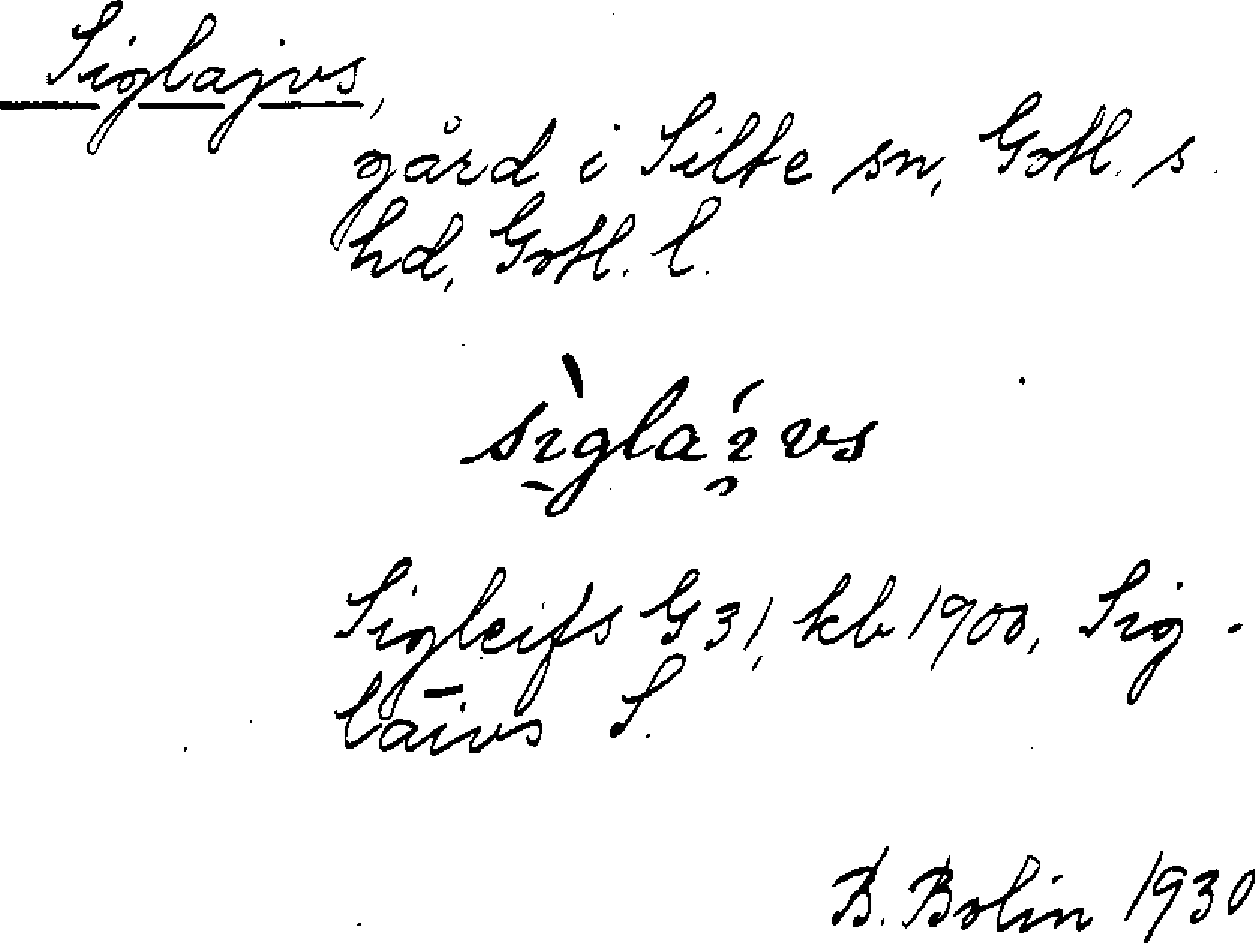 Siglajvs,
gård i Silte sn, Gotl. s.
hd, Gotl. l.
sìglaı́vs
Sigleifs G 31, kb 1900, Sig-
lāivs S.
B. Bolin 1930